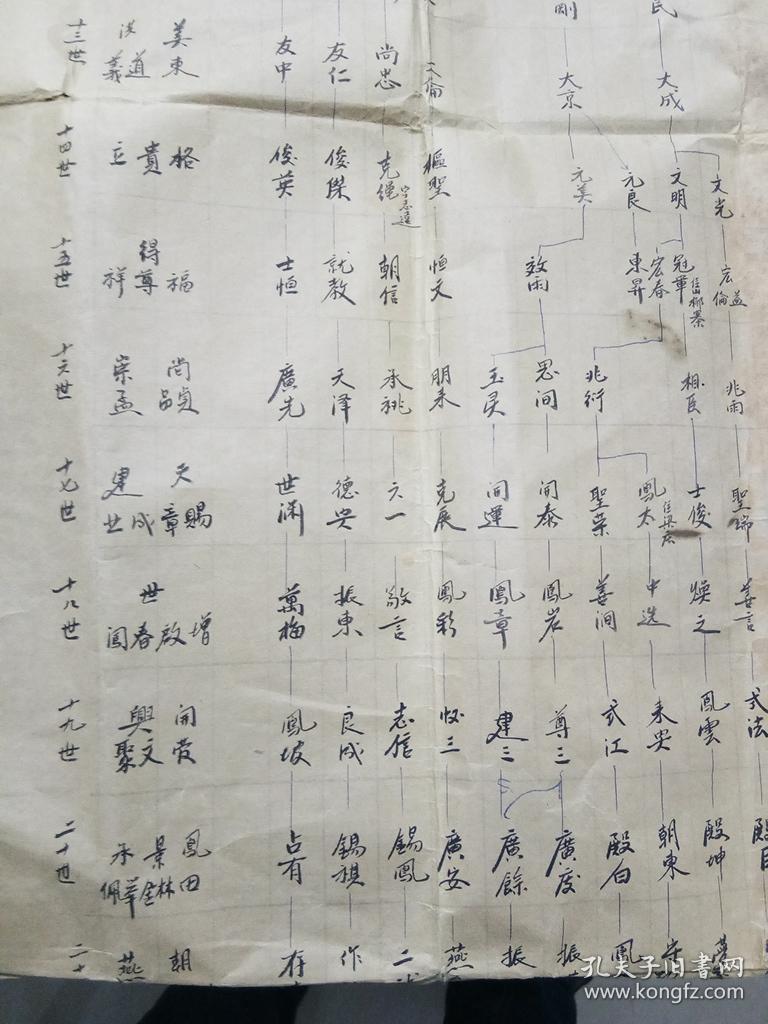 剛
民
十三世
義道
美東
友中
友仁
尚忠
大京
大成
十四世
立 貴 格
俊英
俊傑
克繩
樞聖
元美
元良
文明
文光
十五世
得
祥尊福
士恒
就教
朝信
恒文
效雨
東昇
宏春
冠軍
宏倫
益
十六世
崇孟
尚
廣先
天泽
承祧
朋来
玉灵
思问
兆衍
相臣
兆雨
十七世
建 天
世成章賜
世渊
德安
六一
克展
開運
開泰
聖荣
鳳太
士俊
聖瑞
十八世
世
闻春啟增
萬梅
振東
敬言
鳳彩
鳳章
鳳岩
善润
中选
焕之
善言
十九世
興 開
聚文荣
鳳坡
良成
志信
怀三
建三
尊三
式江
来安
鳳雲
式法
二十世
承 景 鳳
佩華奎林田
占有
錫祺
錫鳳
廣安
廣餘
廣度
殿白
朝東
殿坤
殿臣
二十
燕
朝
存
作
二
燕
振
振
鳳
孔夫子旧書网
www.kongfz.com